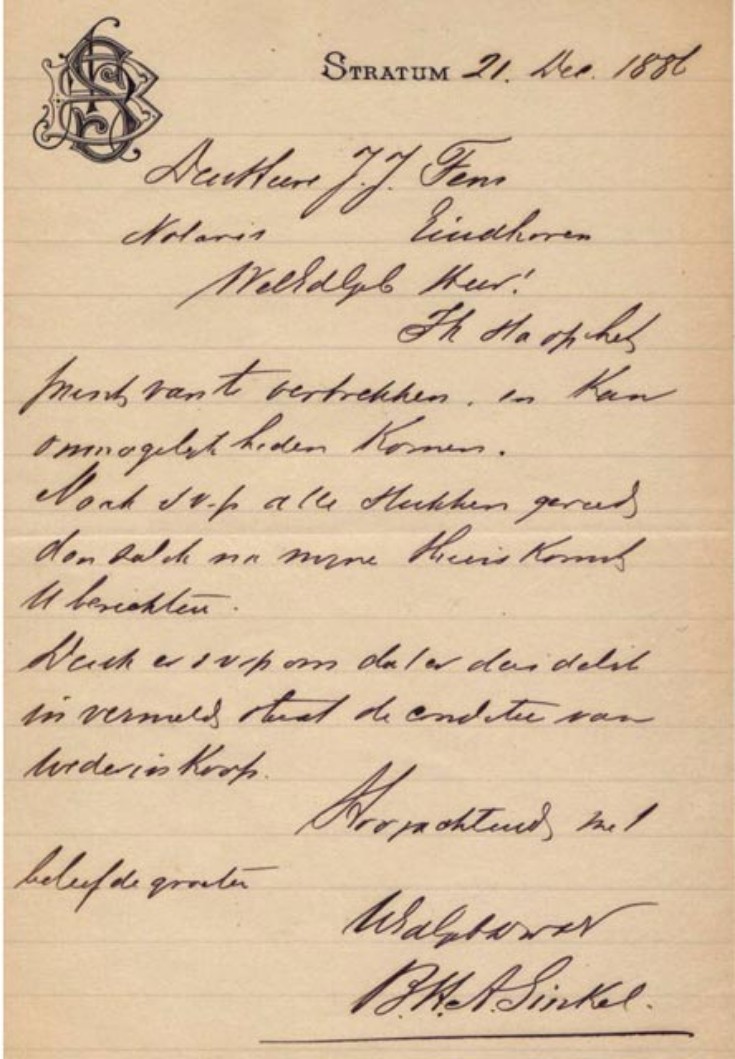 STRATUM 21. Dec. 1886
Den Heere J.J. Fens
Notaris Eindhoven
WelEdlGeb Heer!
Ik sta op het
punt van te vertrekken. en kan
onmogelijk heden komen.
Maak s.v.p alle stukken gereed
dan zal ik na myne thuiskomst
U berichten.
Denk er svp om dat er duidelik
in vermeld staat de conditie van
wederinkoop.
Hoogachtend met
beleefde groeten
UEdlGeb dw dr
B.H.A. Sinkel.